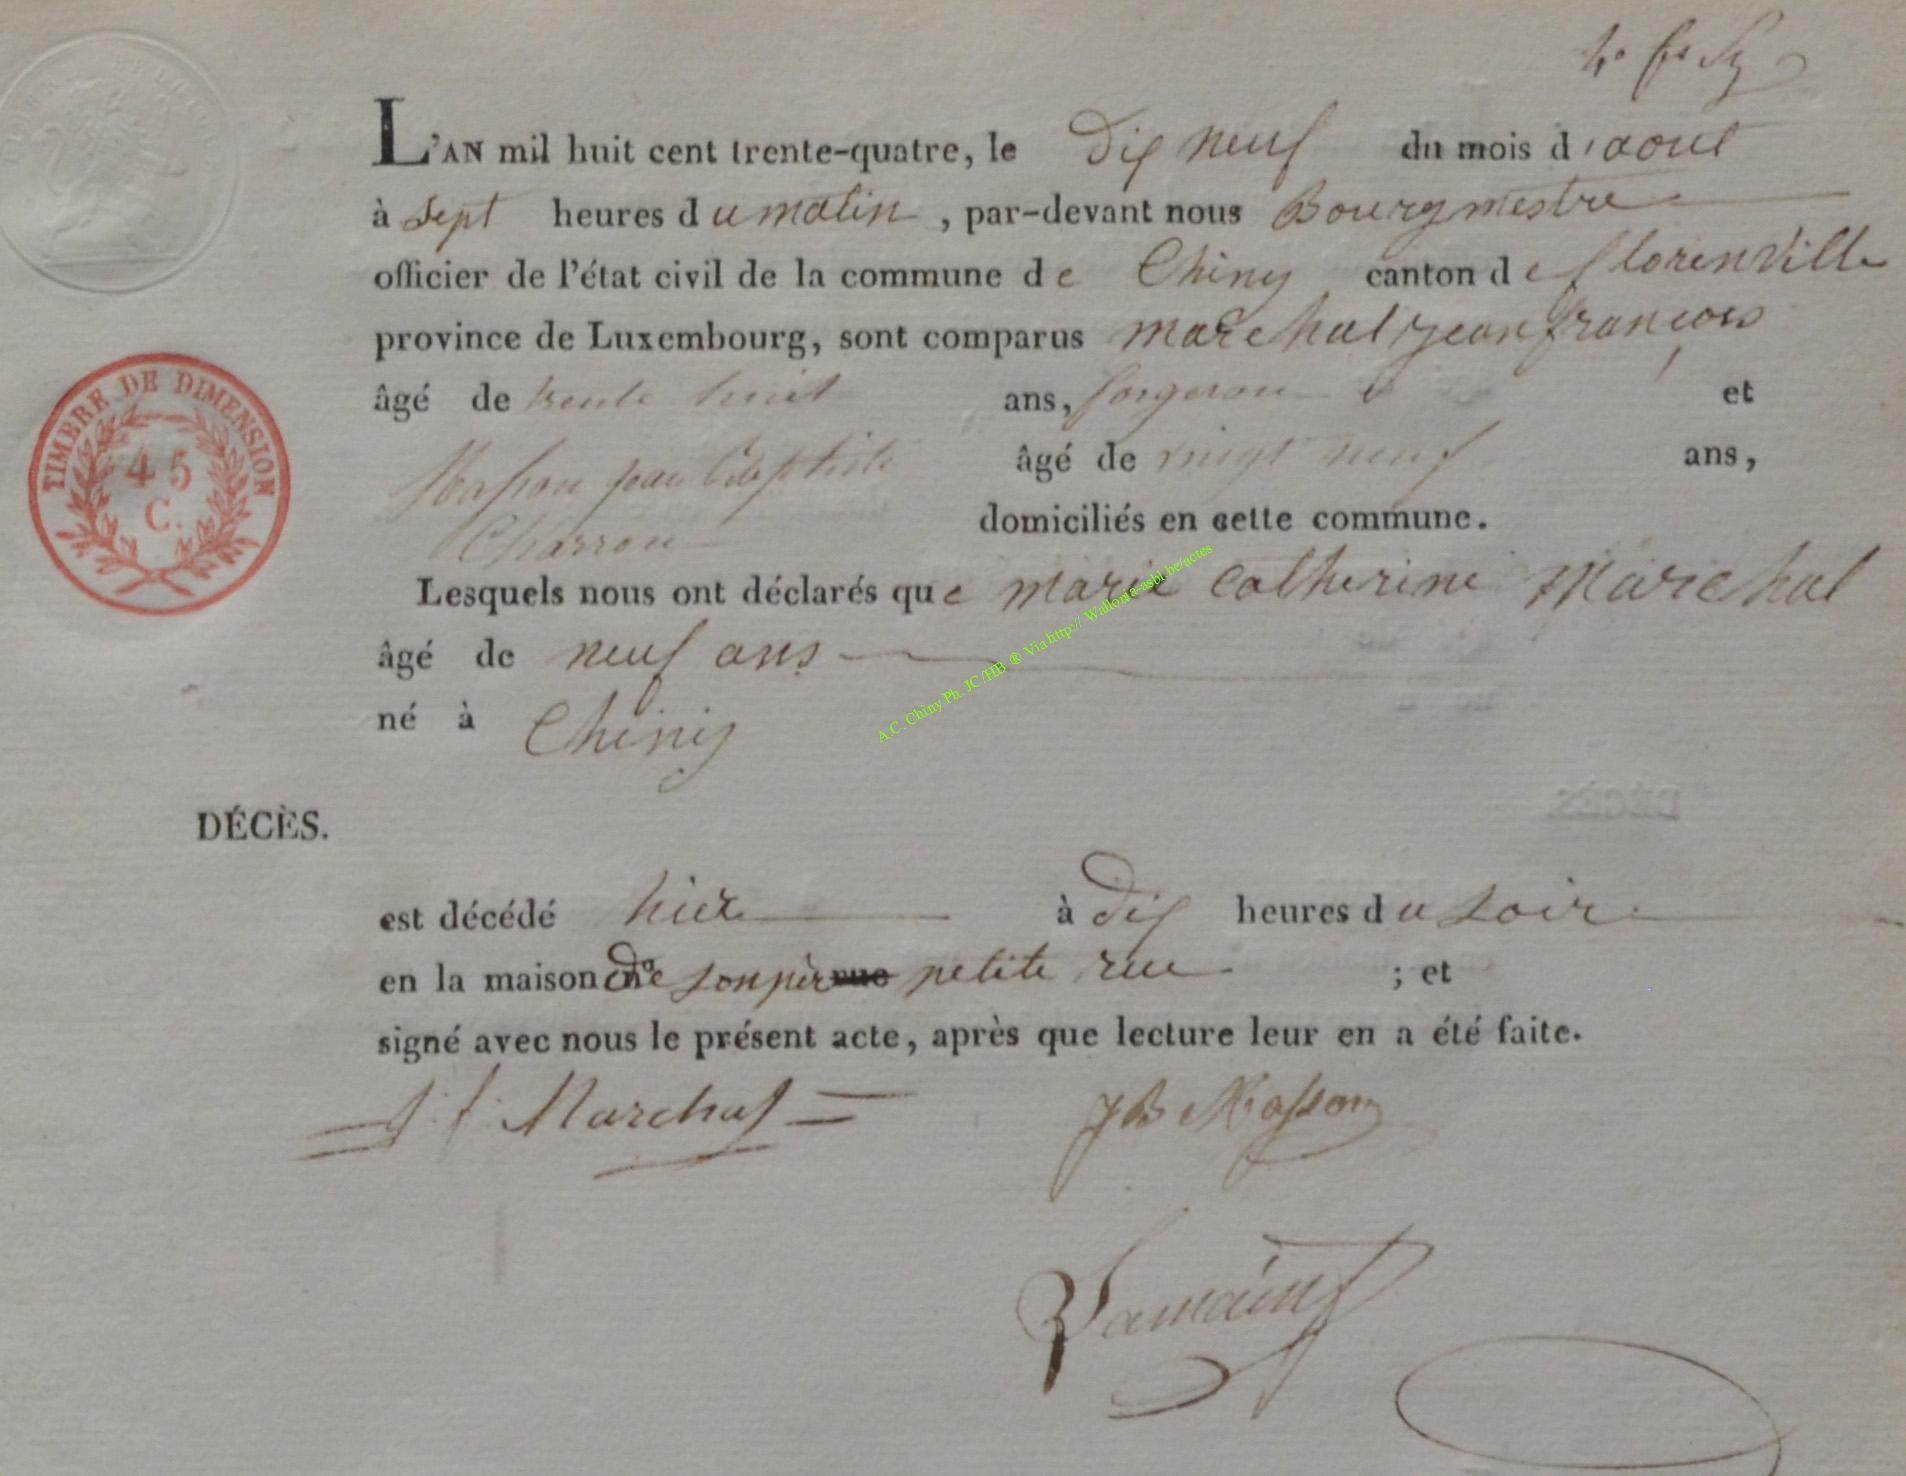 L'AN mil huit cent trente-quatre, le dix neuf du mois d'aout
à sept heures du matin, par-devant nous Bourgmestre
officier de l'état civil de la commune de Chiny canton de florenville
province de Luxembourg, sont comparus marechal jean françois
âgé de trente huit ans, forgeron et
Masson jean Baptiste âgé de vingt neuf ans,
Charron domiciliés en cette commune.
Lesquels nous ont déclarés que marie catherine Marechal
âgé de neuf ans
né à Chiny
DÉCÈS.
est décédé hier à dix heures du soir
en la maison de son pèr petite rue ; et
signé avec nous le présent acte, après que lecture leur en a été faite.
j. f. Marchal JB Masson
TIMBRE DE DIMENSION
45
C.
A.C. Chiny Ph. JC/HB ® Via http:// Wallonia-asbl.be/actes